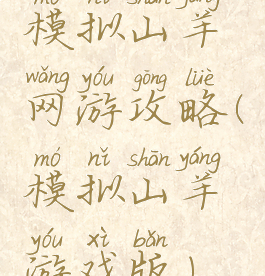 mó nǐ shān yáng
模拟山羊
wǎng yóu gōng lüè
网游攻略(
mó nǐ shān yáng
模拟山羊
yóu xì bǎn
游戏版)